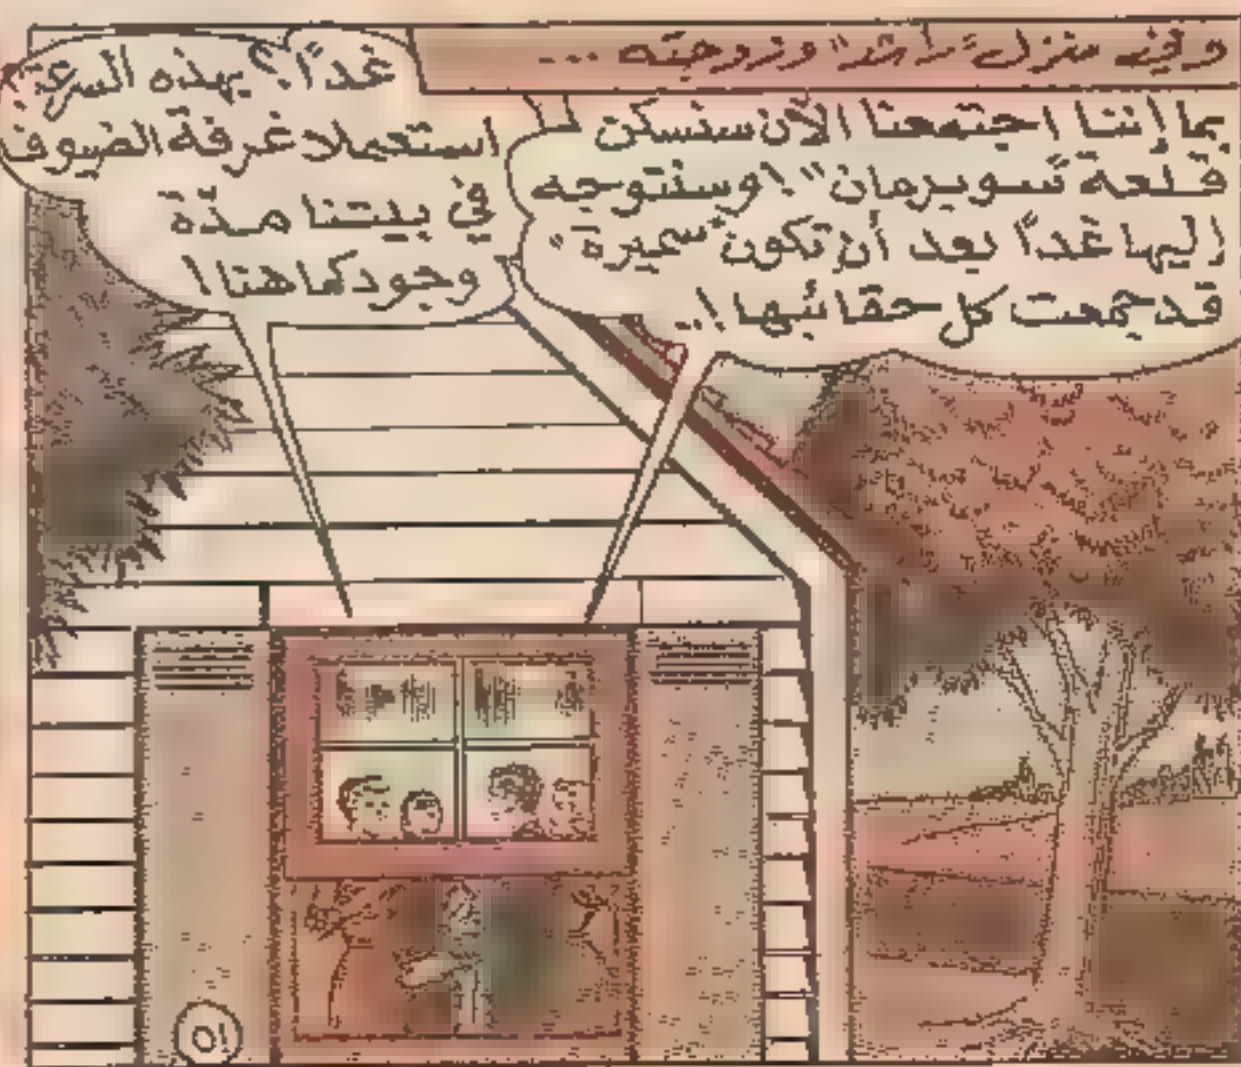 وفي منزل "راشد" وزوجته ...
بما إننا اجتمعنا الآن سنسكن
قلعة "سوبرمان"! وسنتوجه
إليها غداً بعد أن تكون "سميرة"
قد جمعت كل حقائبها !..
غداً.؟ بهذه السرعة؟
استعملا غرفة الضيوف
في بيتنا مدّة
وجودكما هنا !
٥١